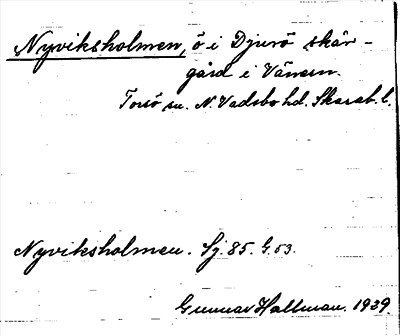 Nyviksholmen, ö i Djurö skär-
gård i Vänern.
Torsö sn. N. Vadsbo hd. Skarab. l.
Nyviksholmen. Sj. 85. G. 53.
Gunnar Hallman. 1939.